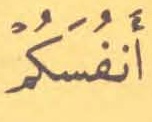 أَنفُسَكُمْ